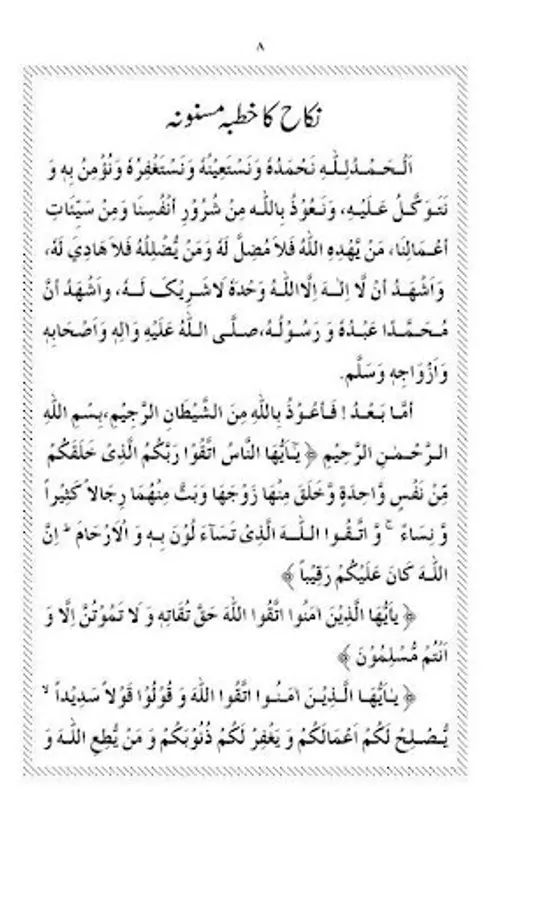 ۸
نکاح کا خطبہ مسنونہ
اَلْحَمْدُلِلّٰہِ نَحْمَدُہٗ وَنَسْتَعِیْنُہٗ وَنَسْتَغْفِرُہٗ وَنُؤْمِنُ بِہٖ وَ
نَتَوَکَّلُ عَلَیْہِ، وَنَعُوْذُ بِاللّٰہِ مِنْ شُرُوْرِ اَنْفُسِنَا وَمِنْ سَیِّئَاتِ
اَعْمَالِنَا، مَنْ یَّھْدِہِ اللّٰہُ فَلاَ مُضِلَّ لَہٗ وَمَنْ یُّضْلِلْہُ فَلاَ ھَادِیَ لَہٗ،
وَاَشْھَدُ اَنْ لَّا اِلٰہَ اِلَّااللّٰہُ وَحْدَہٗ لَاشَرِیْکَ لَہٗ، وَاَشْھَدُ اَنَّ
مُحَمَّدًا عَبْدُہٗ وَ رَسُوْلُہٗ،صلَّی اللّٰہُ عَلَیْہِ وَاٰلِہٖ وَاَصْحَابِہٖ
وَاَزْوَاجِہٖ وَسَلَّم.
اَمَّا بَعْدُ! فَاَعُوْذُ بِاللّٰہِ مِنَ الشَّیْطَانِ الرَّجِیْمِ،بِسْمِ اللّٰہِ
الرَّحْمٰنِ الرَّحِیْمِ ﴿ یٰٓاَیُّھَا النَّاسُ اتَّقُوْا رَبَّکُمُ الَّذِیْ خَلَقَکُمْ
مِّنْ نَفْسٍ وَّاحِدَۃٍ وَّخَلَقَ مِنْھَا زَوْجَھَا وَبَثَّ مِنْھُمَا رِجَالاً کَثِیْراً
وَّ نِسَاءً ۚ وَ اتَّقُوا اللّٰہَ الَّذِیْ تَسَآءَ لُوْنَ بِہٖ وَ الْاَرْحَامَ ؕ اِنَّ
اللّٰہَ کَانَ عَلَیْکُمْ رَقِیْباً ﴾
﴿ یٰاَیُّھَا الَّذِیْنَ اٰمَنُوا اتَّقُوا اللّٰہَ حَقَّ تُقَاتِہٖ وَ لَا تَمُوْتُنَّ اِلَّا وَ
اَنْتُمْ مُّسْلِمُوْنَ ﴾
﴿ یٰاَیُّھَا الَّذِیْنَ اٰمَنُوا اتَّقُوا اللّٰہَ وَ قُوْلُوْا قَوْلاً سَدِیْداً ۙ
یُّصْلِحْ لَکُمْ اَعْمَالَکُمْ وَ یَغْفِرْ لَکُمْ ذُنُوْبَکُمْ وَ مَنْ یُّطِعِ اللّٰہَ وَ